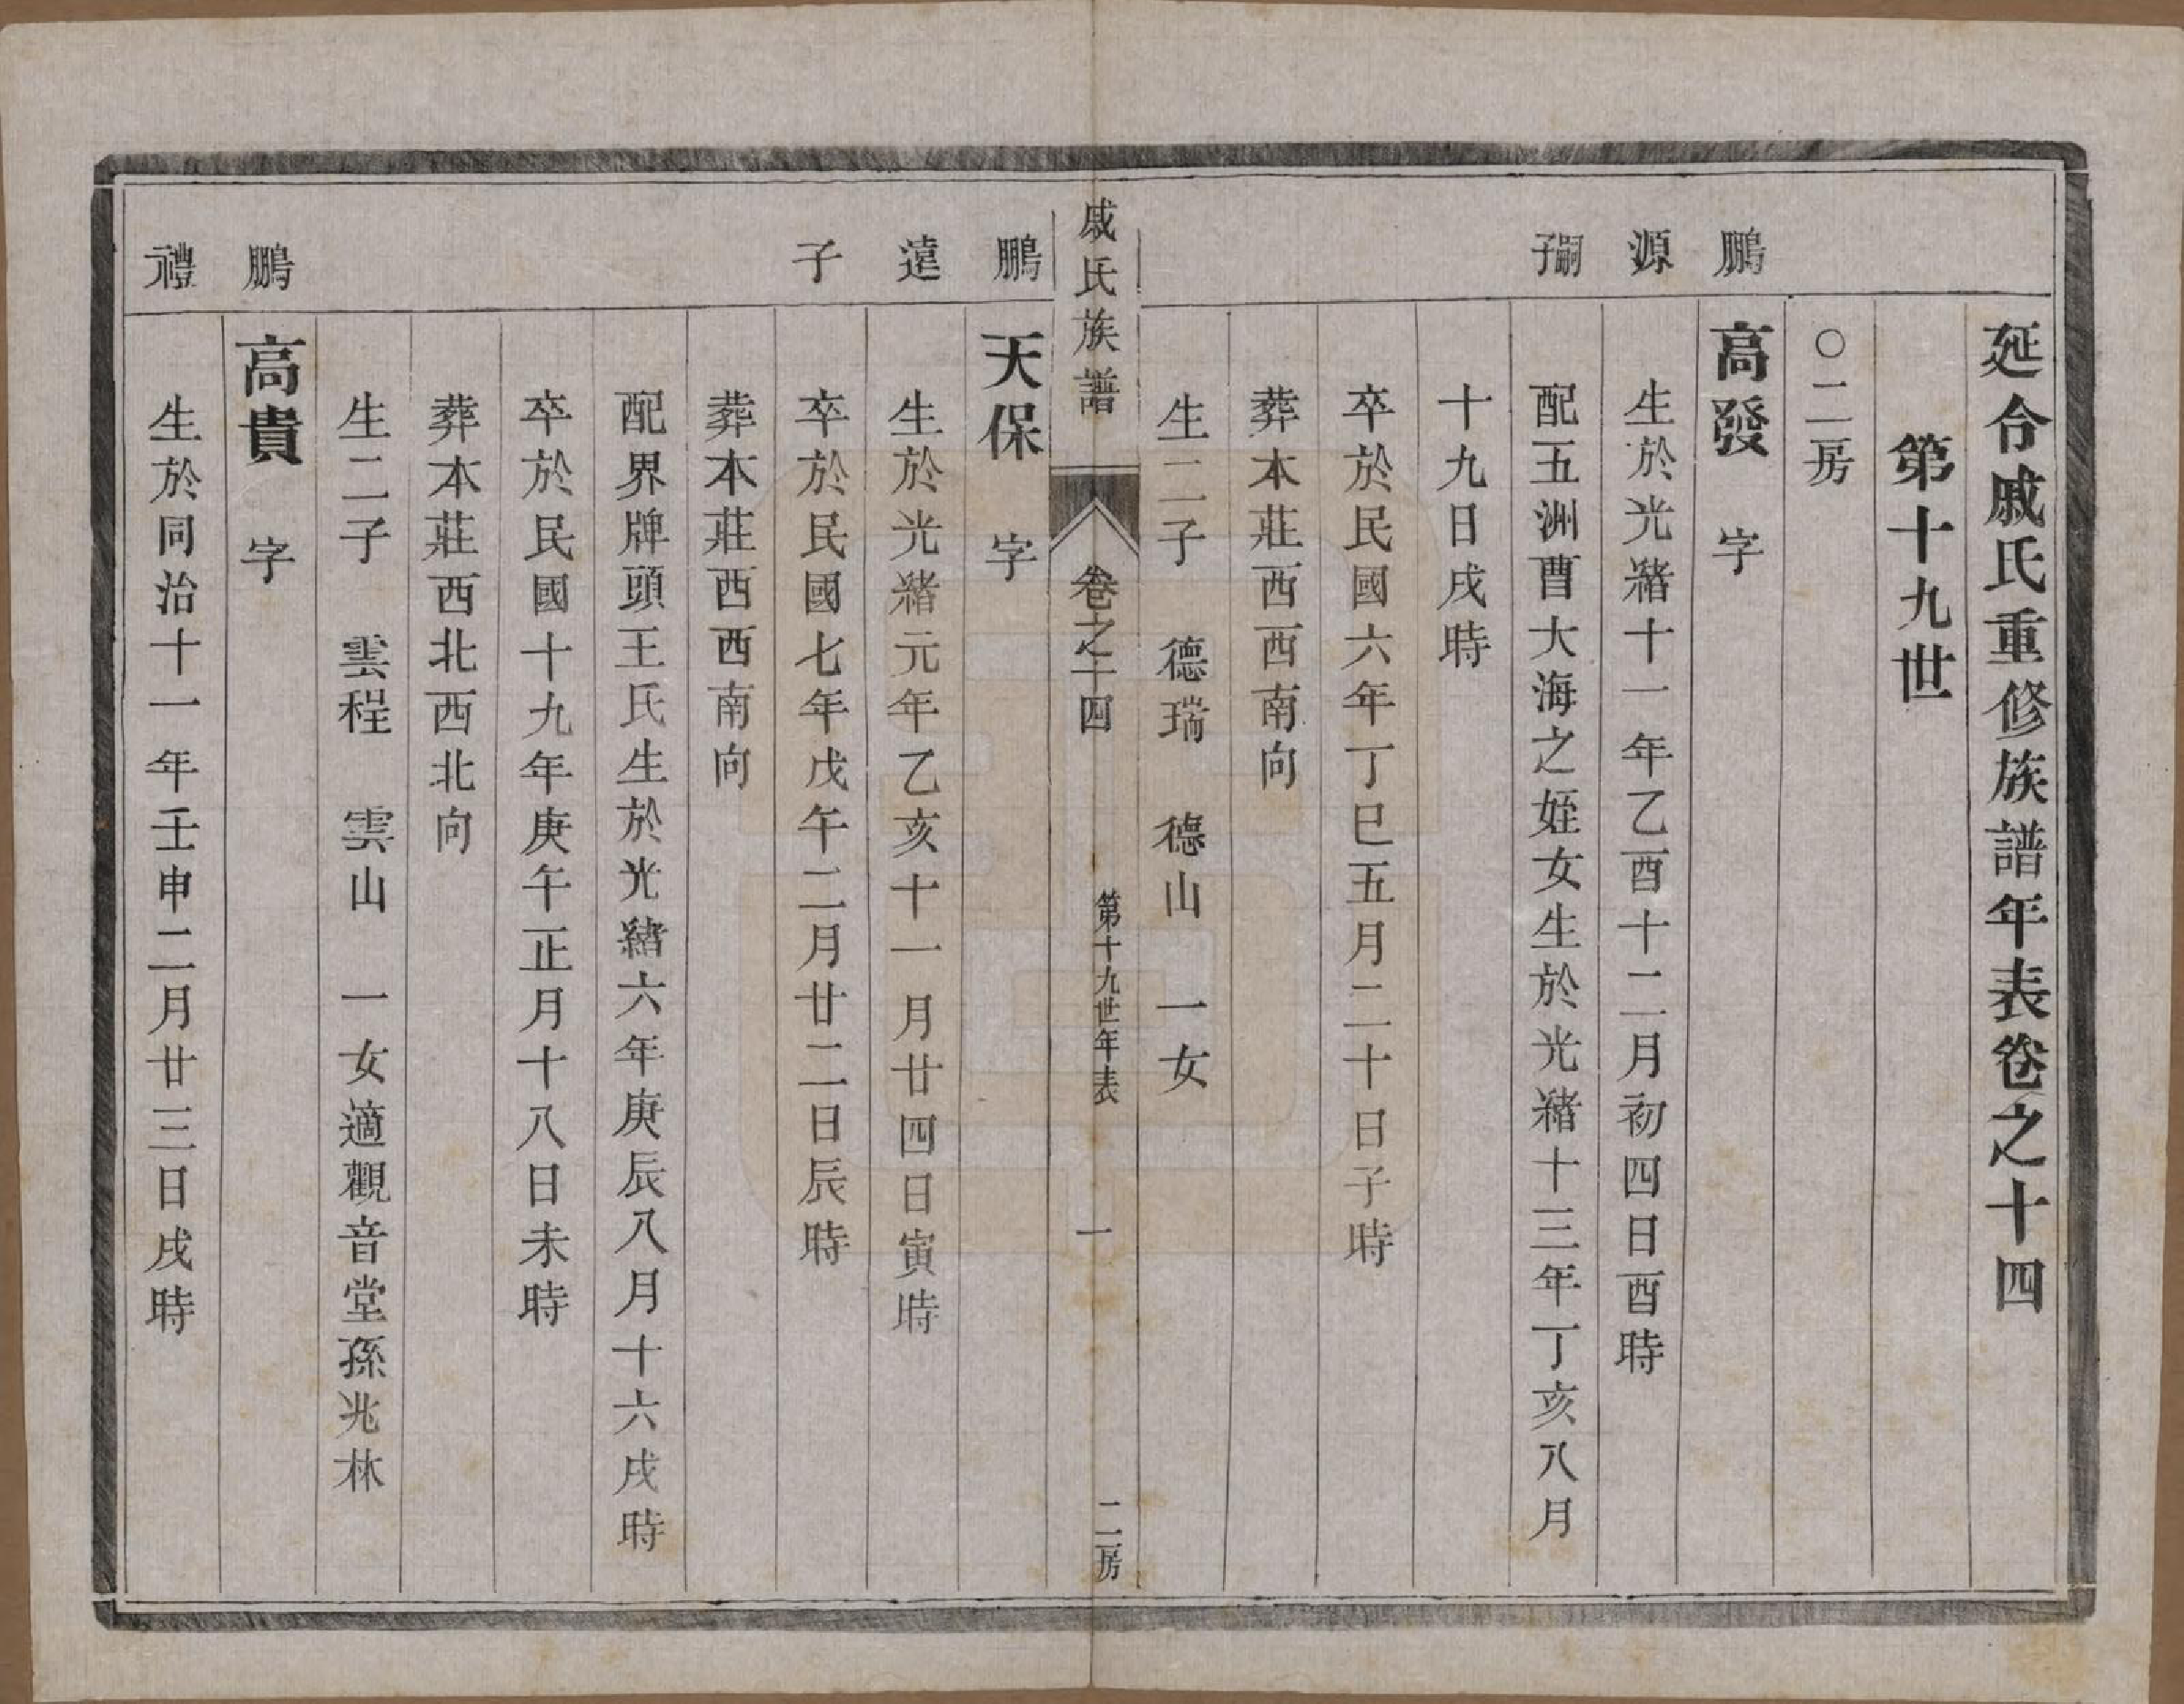 延令戚氏重修族譜年表卷之十四
第十九世
○二房
鵬
高發 字
源
生於光緒十一年乙酉十二月初四日酉時
嗣子
配五洲曹大海之姪女生於光緒十三年丁亥八月
十九日戌時
卒於民國六年丁巳五月二十日子時
葬本莊西西南向
生二子 德瑞 德山 一女
戚氏族譜 卷之十四 第十九世年表 一 二房
鵬
天保 字
遠
生於光緒元年乙亥十一月廿四日寅時
子
卒於民國七年戊午二月廿二日辰時
葬本莊西西南向
配界牌頭王氏生於光緒六年庚辰八月十六戌時
卒於民國十九年庚午正月十八日未時
葬本莊西北西北向
生二子 雲程 雲山 一女適觀音堂孫兆林
鵬
高貴 字
禮
生於同治十一年壬申二月廿三日戌時